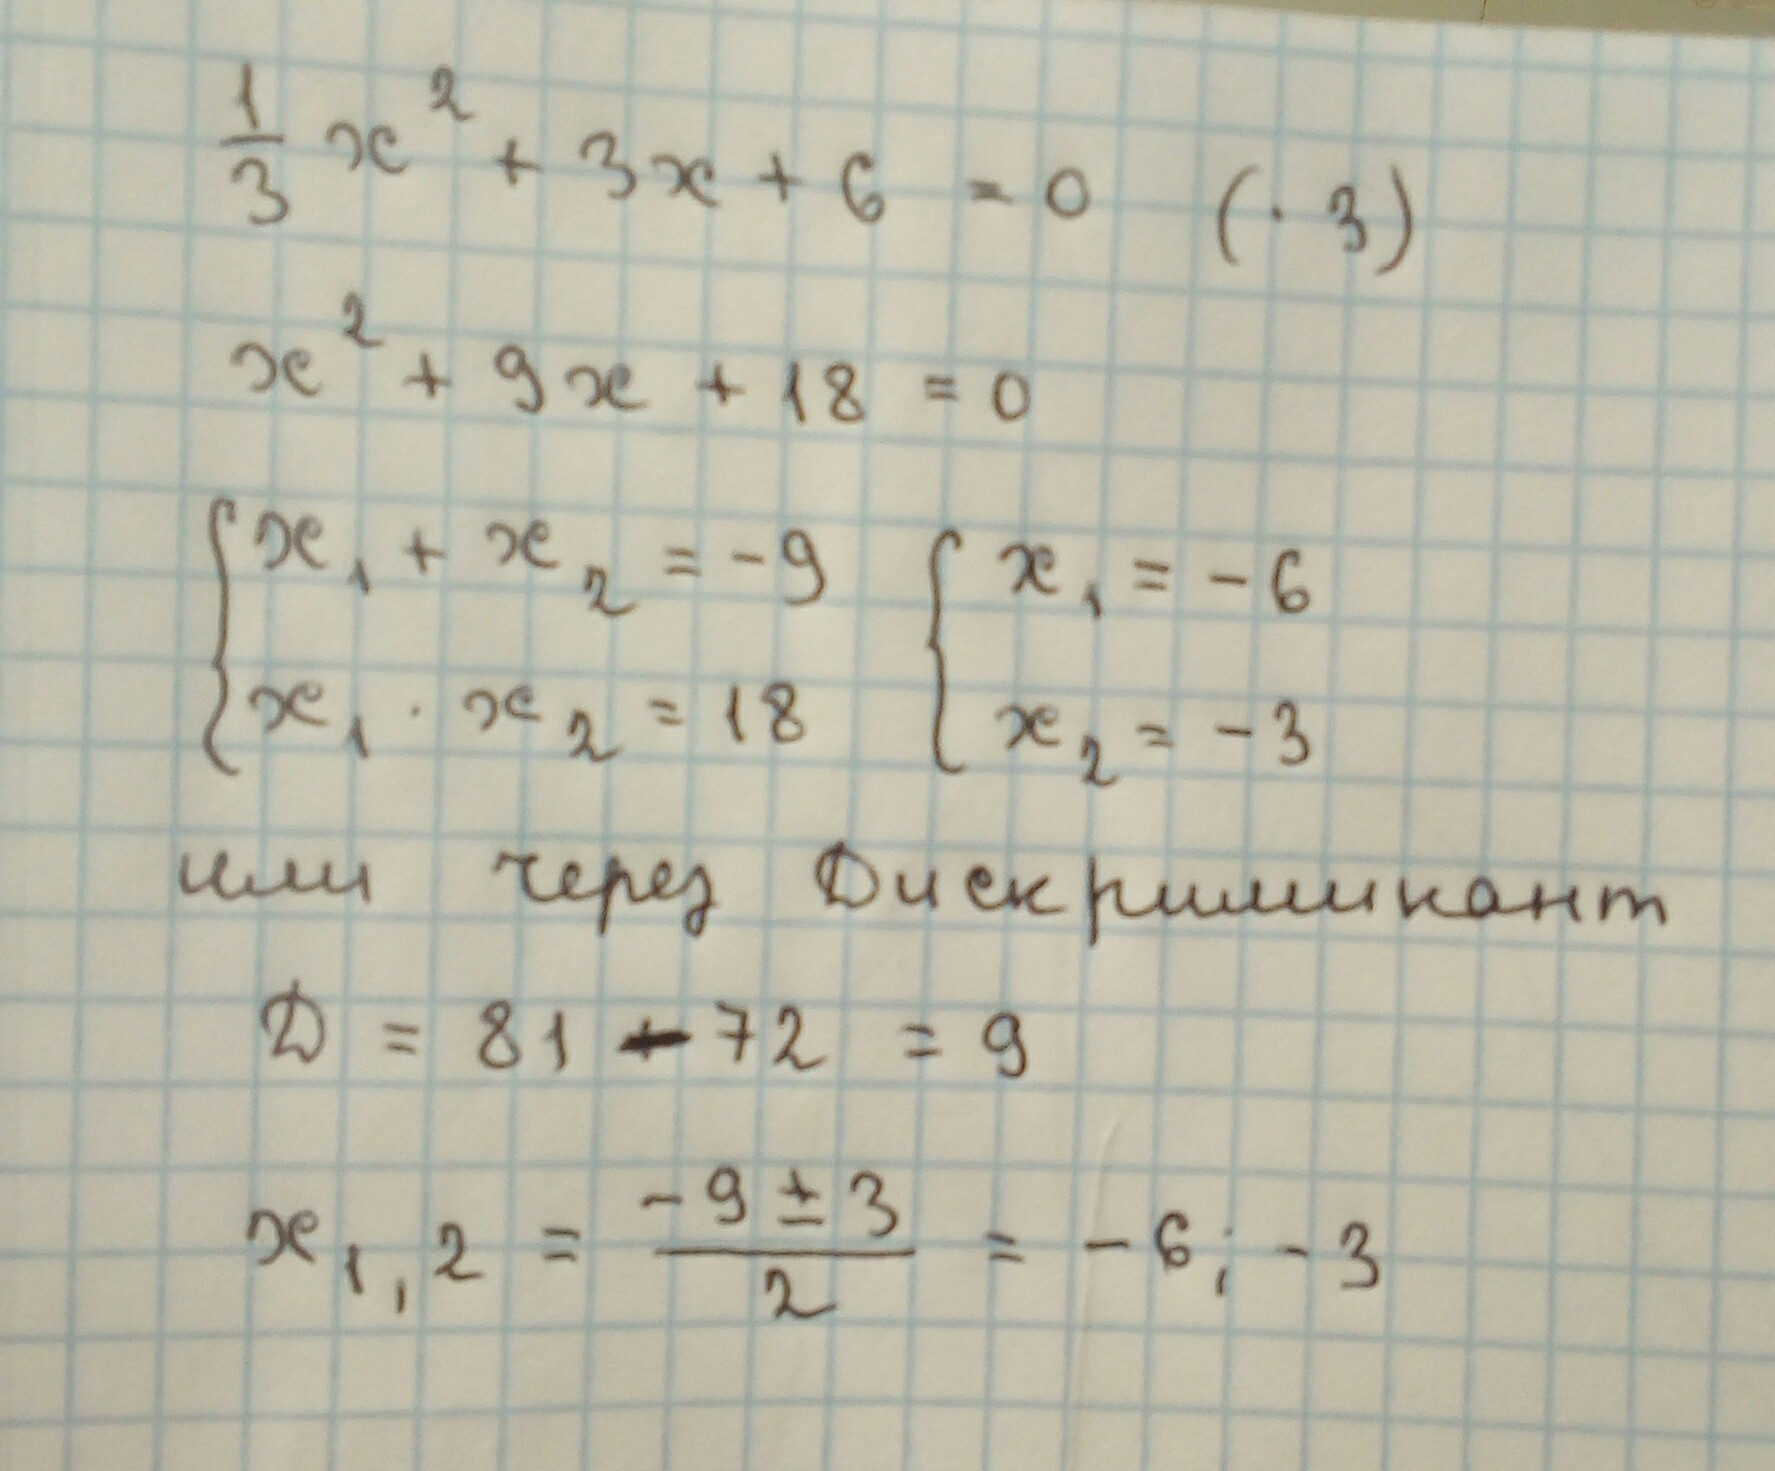 1/3 x² + 3x + 6 = 0 (· 3)
x² + 9x + 18 = 0
{ x₁ + x₂ = -9 { x₁ = -6
{ x₁ · x₂ = 18 { x₂ = -3
или через Дискриминант
D = 81 - 72 = 9
x₁,₂ = (-9 ± 3)/2 = -6; -3